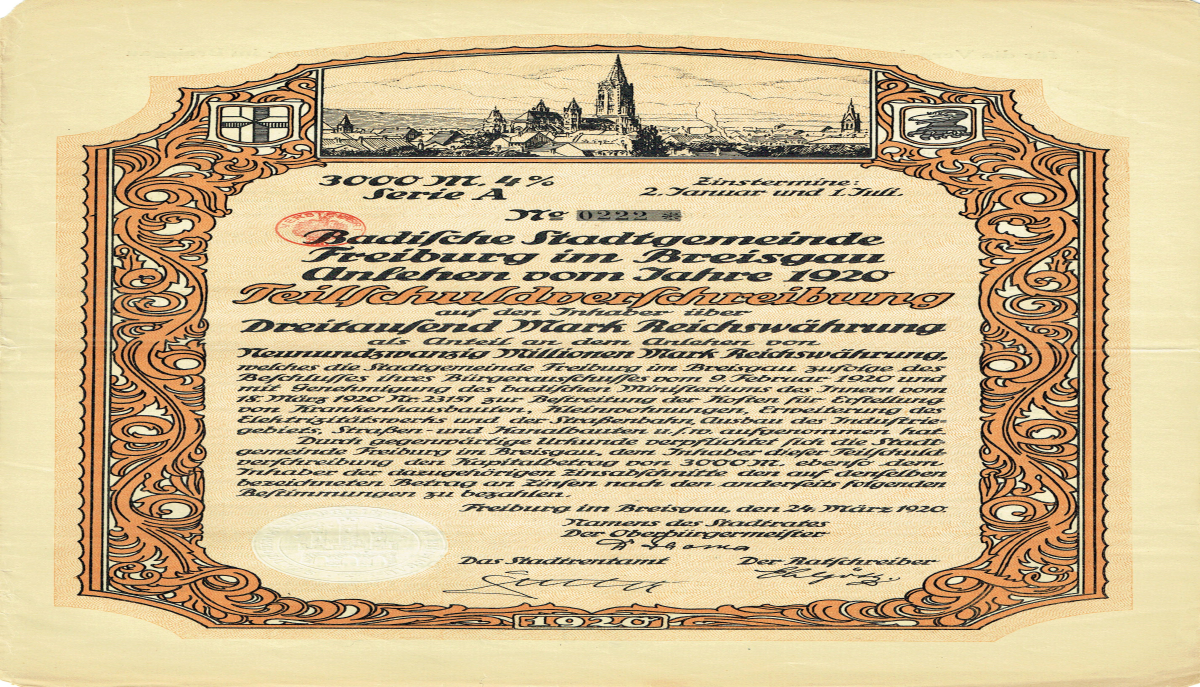 3000 M. 4%
Serie A
Zinstermine:
2. Januar und 1. Juli.
No 0222 *
Badische Stadtgemeinde
Freiburg im Breisgau
Anlehen vom Jahre 1920
Teilschuldverschreibung
auf den Inhaber über
Dreitausend Mark Reichswährung
als Anteil an dem Anlehen von
Neunundzwanzig Millionen Mark Reichswährung,
welches die Stadtgemeinde Freiburg im Breisgau zufolge des
Beschlusses ihres Bürgerausschusses vom 9. Februar 1920 und
mit Genehmigung des badischen Ministeriums des Innern vom
15. März 1920 Nr. 23151 zur Bestreitung der Kosten für Erstellung
von Krankenhausbauten, Kleinwohnungen, Erweiterung des
Elektrizitätswerks und der Straßenbahn, Ausbau des Industrie-
gebiets, Straßen- und Kanalbauten u.s.w. aufgenommen hat.
Durch gegenwärtige Urkunde verpflichtet sich die Stadt-
gemeinde Freiburg im Breisgau, dem Inhaber dieser Teilschuld-
verschreibung den Kapitalbetrag von 3000 M. ebenso dem
Inhaber der dazugehörigen Zinsabschnitte den auf denselben
bezeichneten Betrag an Zinsen nach den anderseits folgenden
Bestimmungen zu bezahlen.
Freiburg im Breisgau, den 24. März 1920.
Namens des Stadtrates
Der Oberbürgermeister
Das Stadtrentamt
Der Ratschreiber
1920